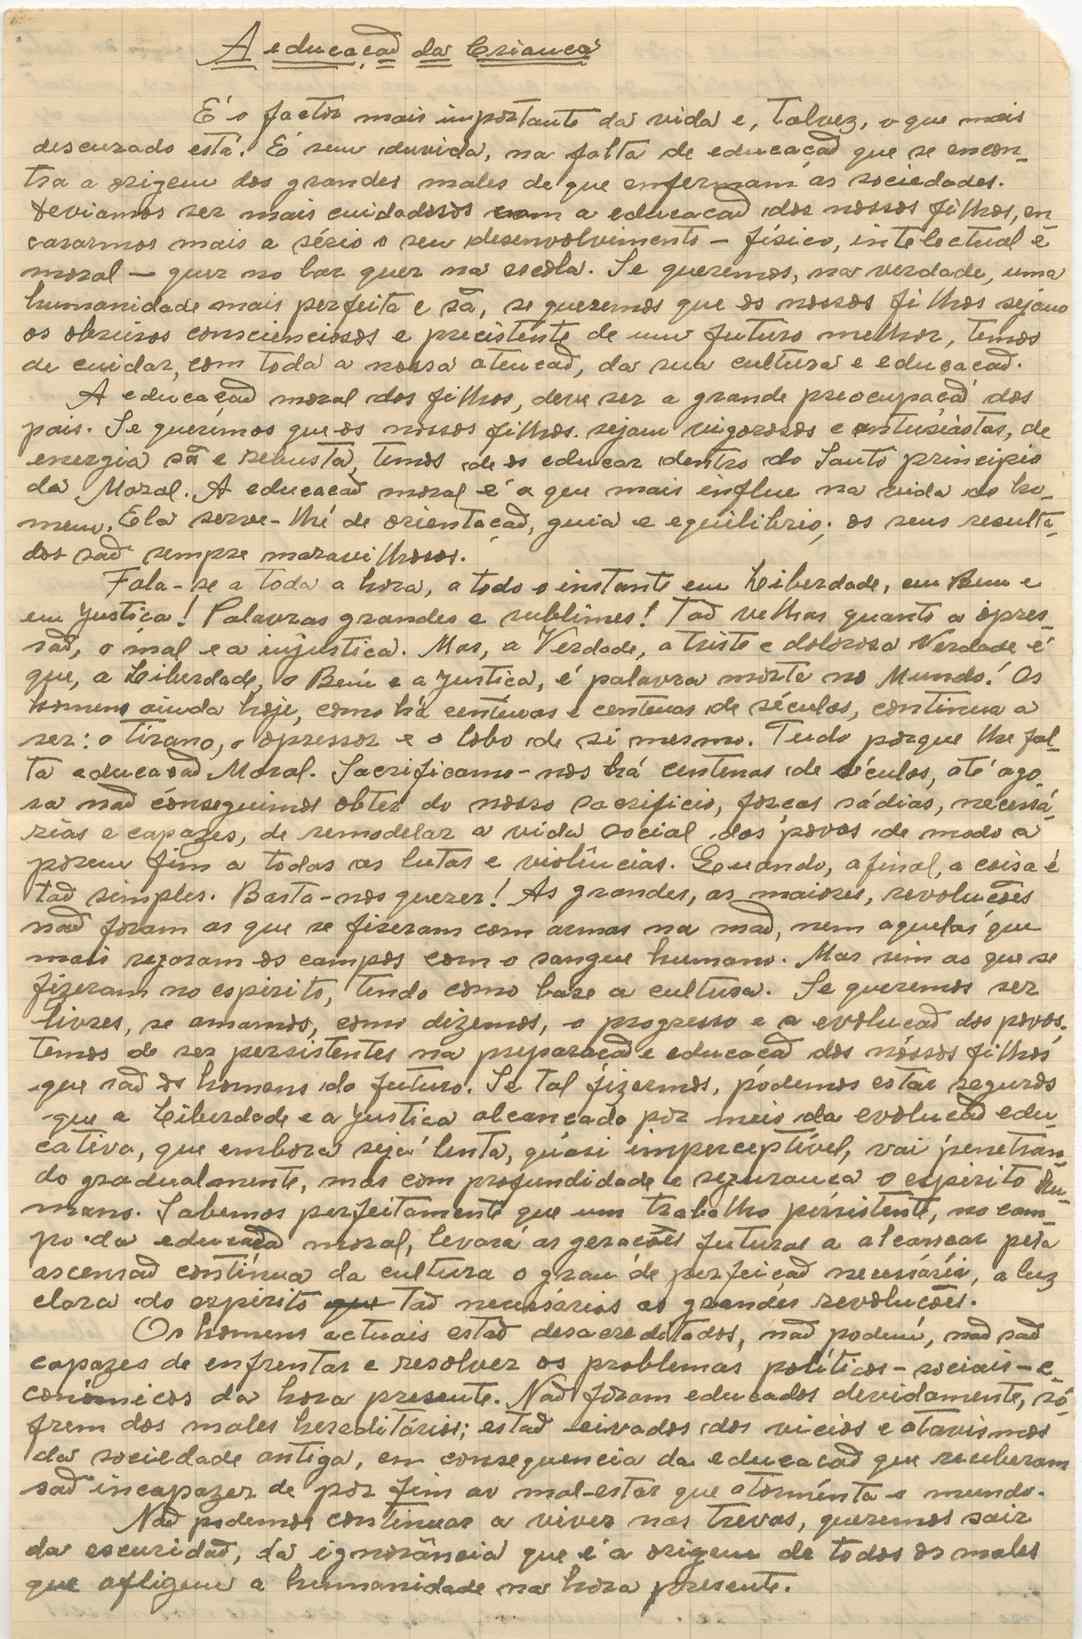 A educação da Criança
É o factor mais importante da vida e, talvez, o que mais
descurado está. É sem duvida, na falta de educação que se encon-
tra a origem dos grandes males de que enfermam as sociedades.
Deviamos ser mais cuidadosos com a educação dos nossos filhos, en
cararmos mais a sério o seu desenvolvimento – físico, intelectual e
moral – quer no lar quer na escola. Se queremos, na verdade, uma
humanidade mais perfeita e sã, se queremos que os nossos filhos sejam
os obreiros conscienciosos e de um futuro melhor, temos
de cuidar, com toda a nossa atenção, da sua cultura e educação.
A educação moral dos filhos, deve ser a grande preocupação dos
pais. Se querimos que os nossos filhos sejam vigorosos e entusiástas, de
energia sã e robusta, temos de os educar dentro do Santo principio
da Moral. A educação moral é a que mais influe na vida do ho-
mem. Ela serve-lhe de orientação, guia e equilibrio; os seus resulta-
dos são sempre maravilhosos.
Fala-se a toda a hora, a todo o instante em Liberdade, em Bem e
em Justiça! Palavras grandes e sublimes! Tão velhas quanto a opres-
são, o mal e a injustica. Mas, a Verdade, a triste e dolorosa Verdade é
que, a Liberdade, o Bem e a Justica, é palavra morta no Mundo! Os
homens ainda hoje, como há centenas e centenas de séculos, continua a
ser: o tirano, o opressor e o lobo de si mesmo. Tudo porque lhe fal-
ta educação Moral. Sacrificamo-nos há centenas de séculos, até ago
ra não conseguimos obter do nosso sacrificio, forças sádias, necessá-
rias e capazes, de remodelar a vida social dos povos de modo a
porem fim a todas as lutas e violências. Quando, afinal, a coisa é
tão simples. Basta-nos querer! As grandes, as maiores, revoluções
não foram as que se fizeram com armas na mão, nem aquelas que
mais regaram os campos com o sangue humano. Mas sim as que se
fizeram no espirito, tendo como base a cultura. Se queremos ser
livres, se amamos, como dizemos, o progresso e a evolução dos povos.
temos de ser persistentes na preparação e educação dos nóssos filhos
que são os homens do futuro. Se tal fizermos, pódemos estar seguros
que a Liberdade e a Justica alcançada por meio da evolução edu-
cativa, que embora seja lenta, quási imperceptível, vai penetran-
do gradualmente, mas com profundidade e segurança o espirito hu-
mano. Sabemos perfeitamente que um trabalho persistente, no cam-
po da educação moral, levará as gerações futuras a alcançar pela
ascensão contínua da cultura o grau de perfeição necessária, a luz
clara do espirito que tão necessárias as grandes revoluções.
Os homens actuais estão desacreditados, não podem, não são
capazes de enfrentar e resolver os problemas políticos-sociais-e-
conómicos da hora presente. Não foram educados devidamente, só-
frem dos males hereditários; estão eivados dos vicios e atavismos
da sociedade antiga, em consequencia da educação que receberam
são incapazes de pôr fim ao mal-estar que atorménta o mundo.
Não podemos continuar a viver nas trevas, queremos sair
da escuridão, da ignorância que é a origem de todos os males
que afligem a humanidade na hora presente.